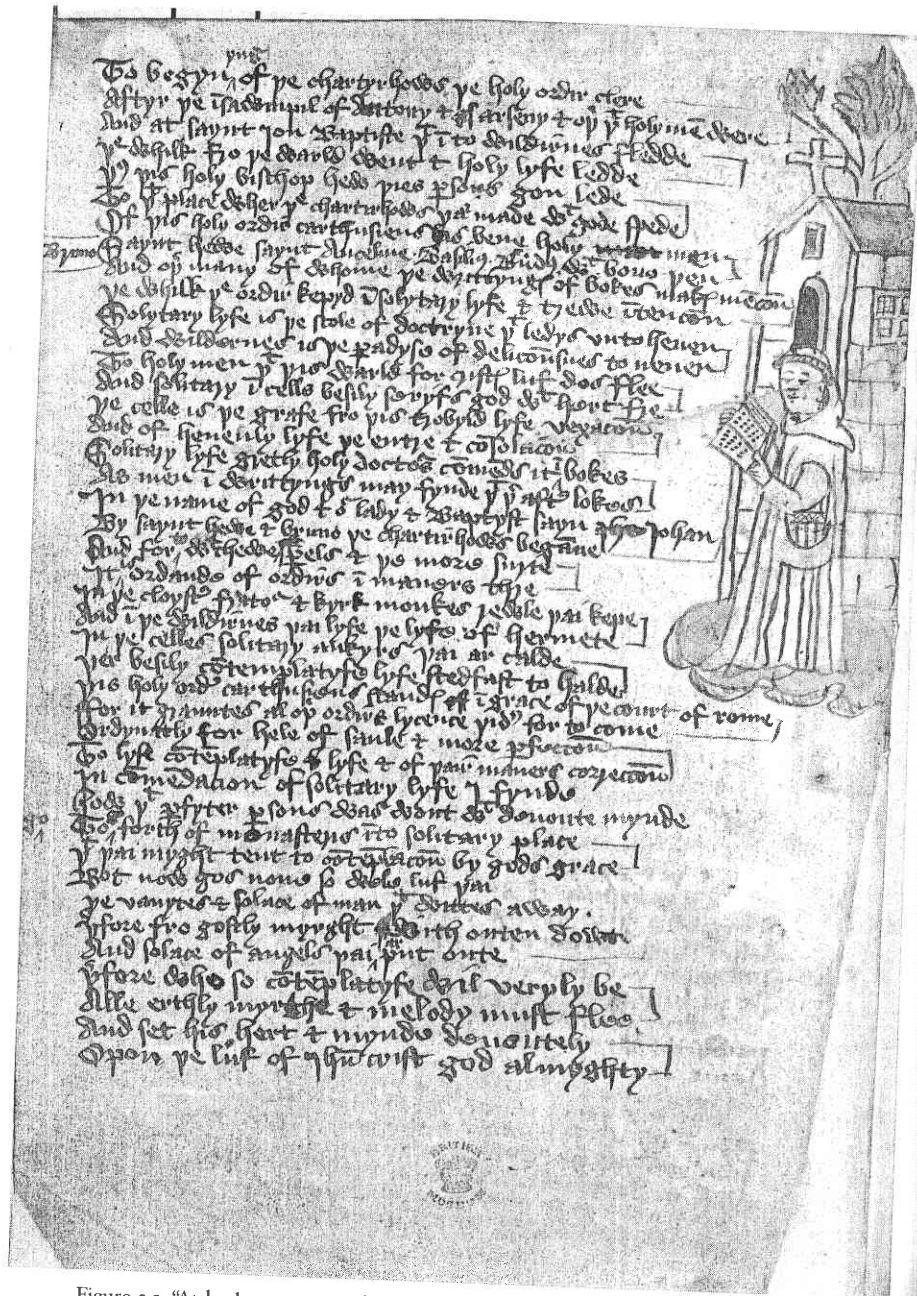 yng
To begyn of þe chartyrhows þe holy ordir clere
Aftyr þe insawmpil of Antony & Arseny & oþ þt holy men were
And at saynt Ion Baptiste þt ī to wildirnes fledde
þe whilk fro þe warld went & holy lyfe ledde
þis holy bisshop hew þies psons gon lede
To þt place wher þe chartirhows þai made wt gode spede
Of þis holy ordir carthusiens has bene holy men
Bruno
Saynt hewe saynt Ancelme Basilius wt bono pen
And oþ many of whome þe wryttynges of bokes makes mēcōn
þe whilk þe ordir kepyd ī solytary lyfe & trewe ītencōn
Solytary lyfe is þe scole of doctryne þt ledys vnto heuen
And wildernes is þe padyse of deliciousnes to neuen
To holy men þt þis warld for luf dos flee
And solitary ī cells besily seryfs god wt hert fre
þe celle is þe grafe fro þis trobyld lyfe vexacōn
And of heuenly lyfe þe entre & cōsolacōn
Solitary lyfe gretly holy doctors cōmēds ī bokes
As men ī writtyngs may fynde þt þt aftr lokes
In þe name of god & or lady & Baptyst sayn Johan
By saynt hewe & bruno þe chartirhows begāne
And for & þe more suyte
It is ordande of ordirs ī maners thre
In þe cloystr & kyrk monkes rewle þai kepe
And ī þe wildirnes þai lyfe þe lyfe of hermete
In þe celles solitary ankyrs þai ar calde
þer besily cōtemplatyfe lyfe stedfast to halde
þis holy ordr carthusiens standes ī grace of þe court of rome
ffor it grauntes al oþ ordirs lycence for to come
Ordynatly for hele of saule & more pfeccōn
To lyfe cōtēplatyfe lyfe & of þair maners correccōn
In cōmēdacion of solitary lyfe I fynde
þt pfyter psons was wont wt deuoute mynde
Go forth of mōnasterys īto solitary place
þt þai myght tent to cōtēplacōn by gods grace
Bot now gos none so wele luf þai
þe vanytes & solace of man þt wittes away
þfore fro gostly myrght with outen dowte
And solace of angels þai ar put oute
þfore who so cōtēplatyfe wil veryly be
Alle erthly myrthe & melody must flee
And set his hert & mynde deuoutely
Opon þe luf of Ihū crist god almyghty
BRITISH
MUSEUM